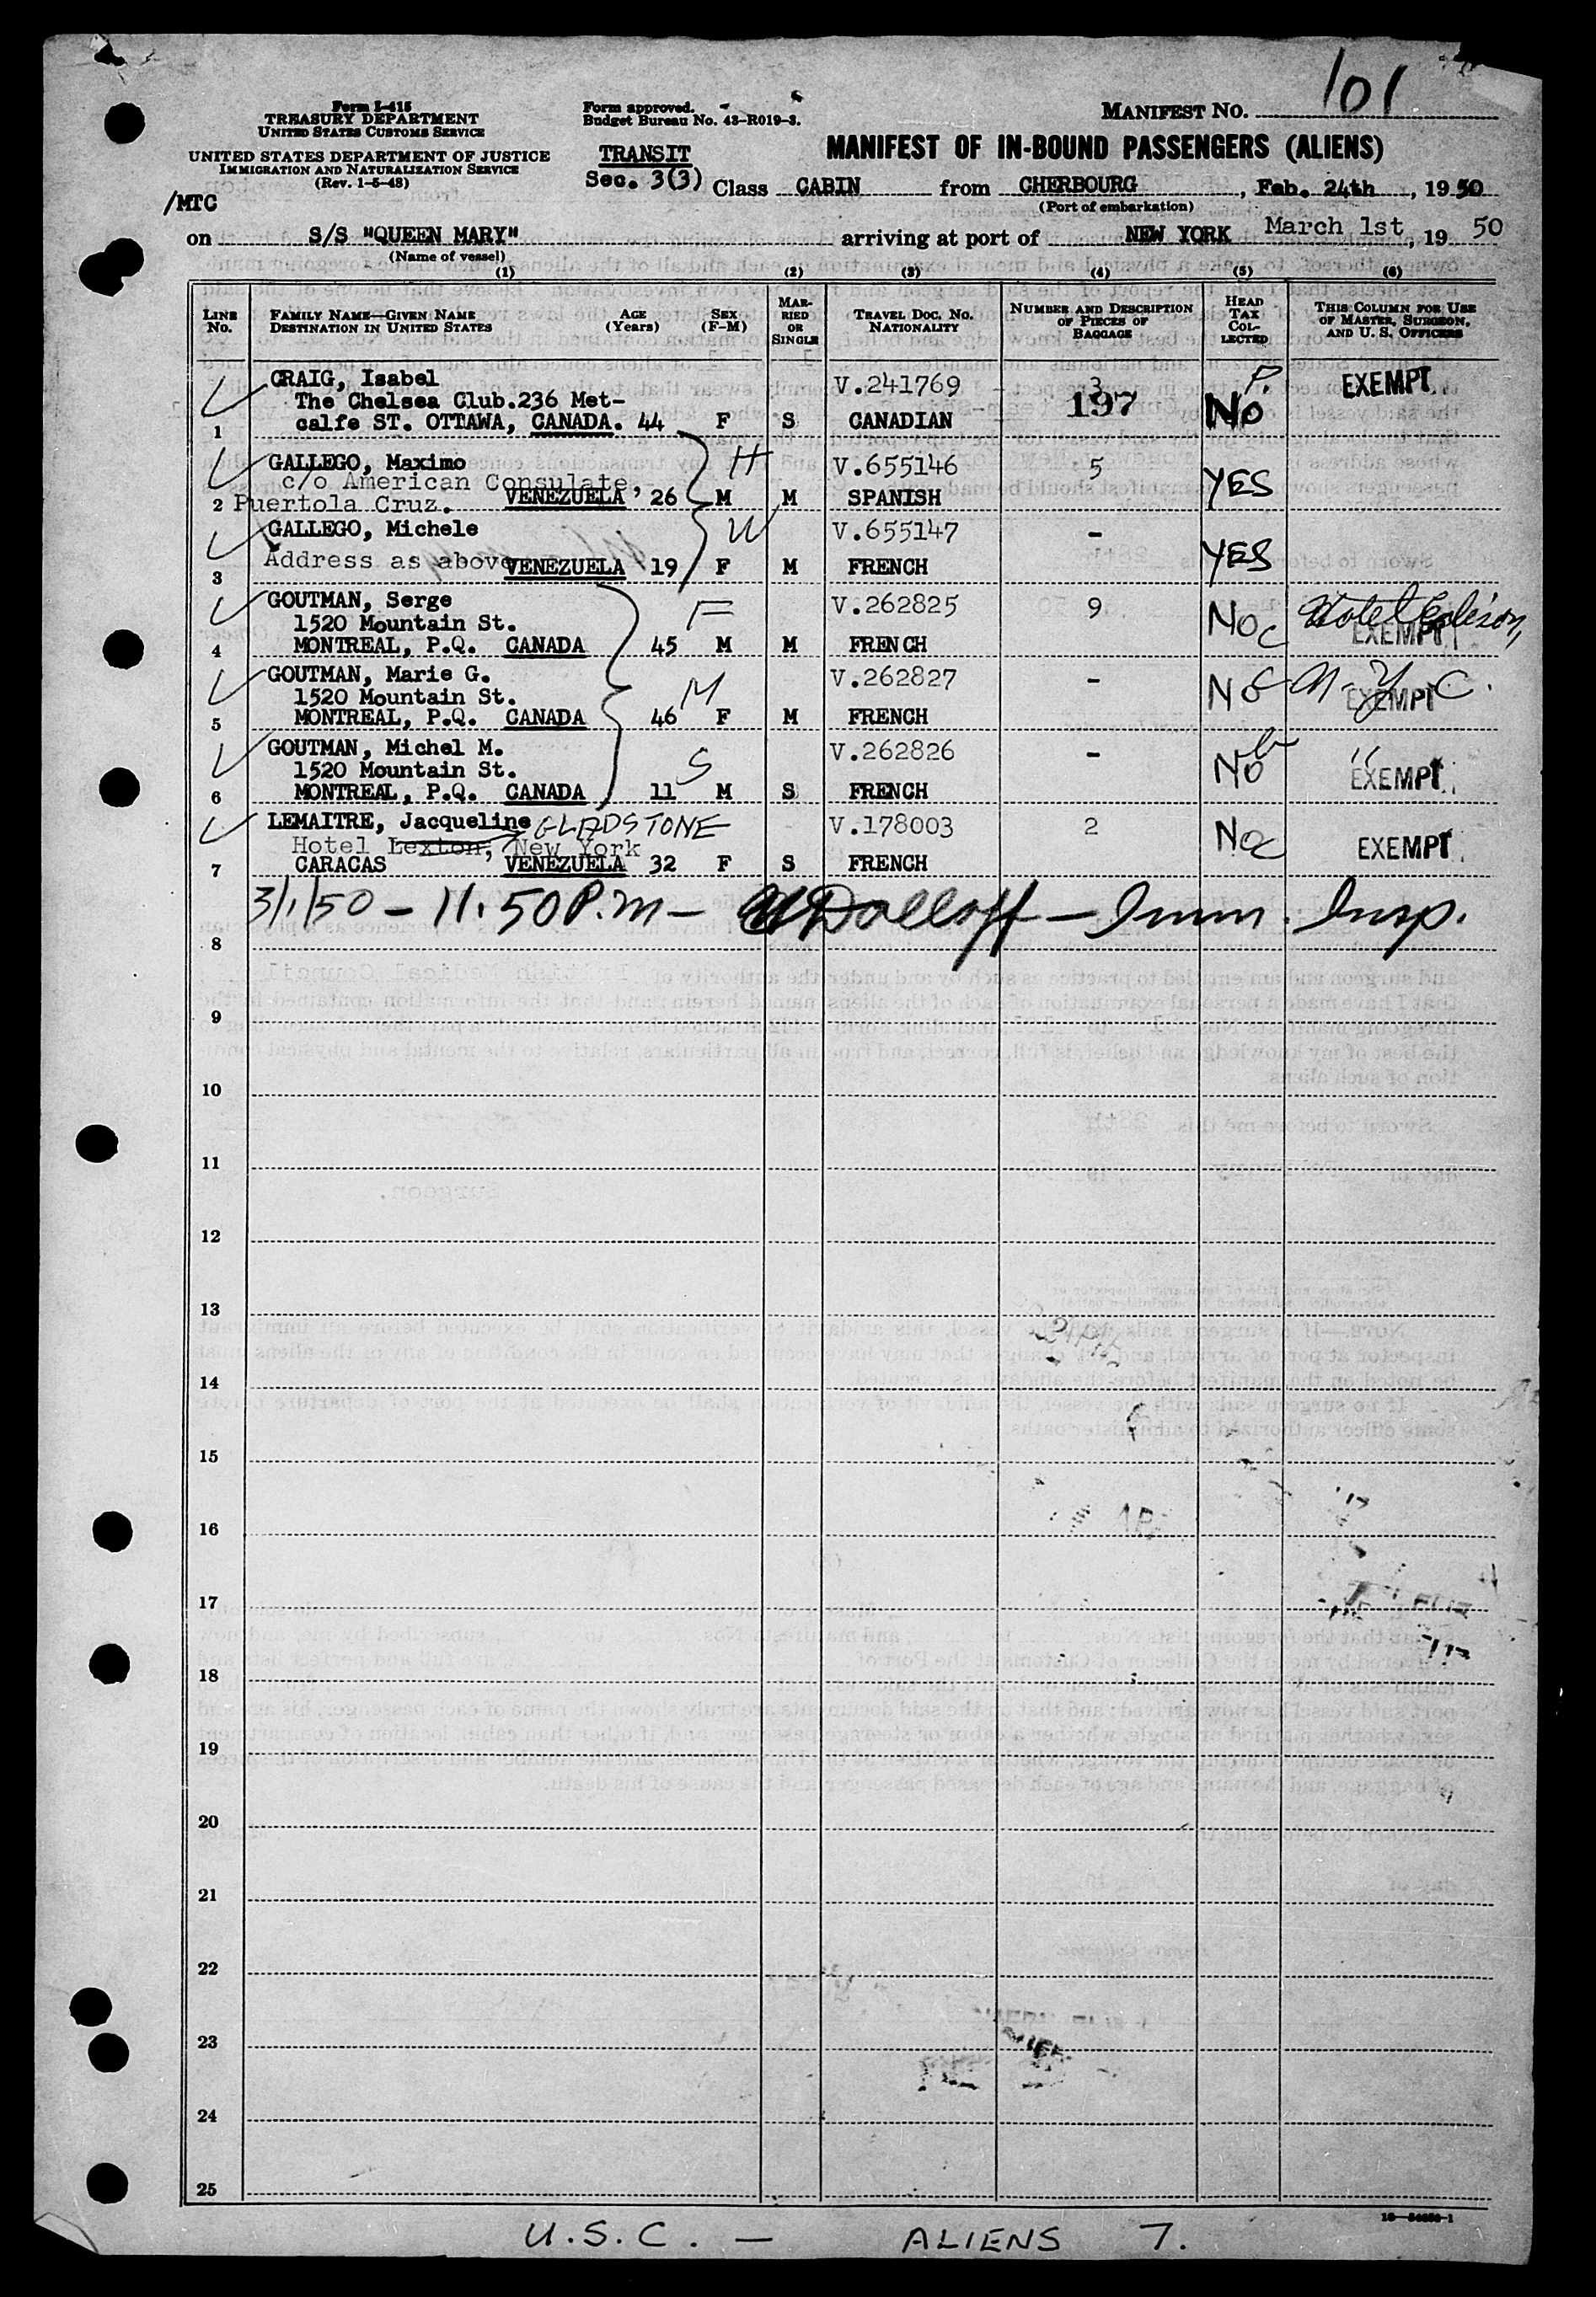 101
Form I-415
TREASURY DEPARTMENT
UNITED STATES CUSTOMS SERVICE
UNITED STATES DEPARTMENT OF JUSTICE
IMMIGRATION AND NATURALIZATION SERVICE
(Rev. 1-5-48)
/MTC
Form approved.
Budget Bureau No. 43-R019-3.
TRANSIT
Sec. 3(3)
MANIFEST NO.
MANIFEST OF IN-BOUND PASSENGERS (ALIENS)
Class CABIN from CHERBOURG, Feb. 24th, 1950
(Port of embarkation)
on S/S "QUEEN MARY" arriving at port of NEW YORK March 1st, 19 50
(Name of vessel)
(1) (2) (3) (4) (5) (6)
LINE NO.
FAMILY NAME—GIVEN NAME
DESTINATION IN UNITED STATES
AGE (Years)
SEX (F-M)
MARRIED OR SINGLE
TRAVEL DOC. NO. NATIONALITY
NUMBER AND DESCRIPTION OF PIECES OF BAGGAGE
HEAD TAX COLLECTED
THIS COLUMN FOR USE OF MASTER, SURGEON, AND U. S. OFFICERS
CRAIG, Isabel V.241769 3 P. EXEMPT
The Chelsea Club.236 Met- 197
1 calfe ST. OTTAWA, CANADA. 44 F S CANADIAN No
GALLEGO, Maximo H V.655146 5
c/o American Consulate, YES
2 Puertola Cruz. VENEZUELA 26 M M SPANISH
GALLEGO, Michele W V.655147 -
3 Address as above VENEZUELA 19 F M FRENCH YES
GOUTMAN, Serge F V.262825 9 No c Hotel Edison,
1520 Mountain St. EXEMPT
4 MONTREAL, P.Q. CANADA 45 M M FRENCH
GOUTMAN, Marie G. M V.262827 - No c N.Y.C.
1520 Mountain St. EXEMPT
5 MONTREAL, P.Q. CANADA 46 F M FRENCH
GOUTMAN, Michel M. S V.262826 - No "
1520 Mountain St. EXEMPT
6 MONTREAL, P.Q. CANADA 11 M S FRENCH
LEMAITRE, Jacqueline GLADSTONE V.178003 2 No c
Hotel Lexton, New York EXEMPT
7 CARACAS VENEZUELA 32 F S FRENCH
3/1/50 - 11.50 P.m - Dolloff - Imm. Insp.
8
9
10
11
12
13
14
15
16
17
18
19
20
21
22
23
24
25
U.S.C. — ALIENS 7.